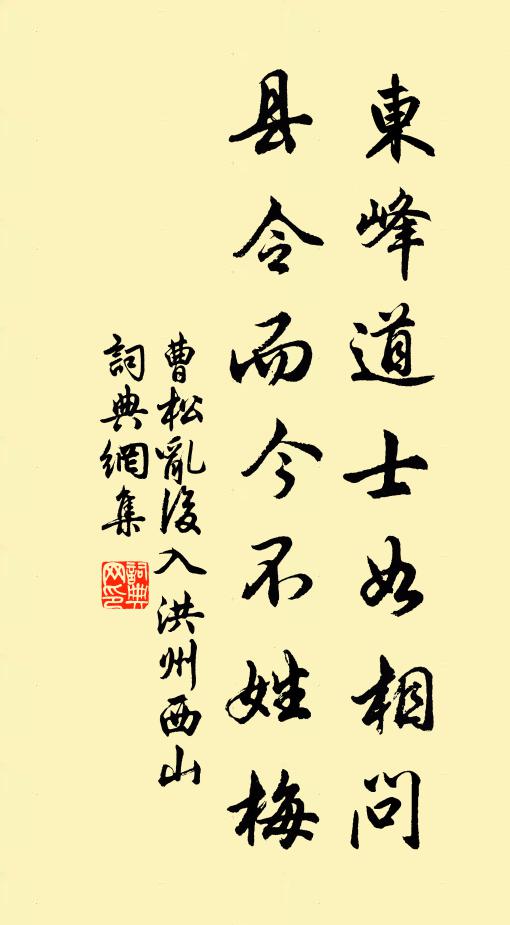 東峰道士如相問
县令而今不姓梅
曹松亂後入洪州西山
詞典網集
詞典網印